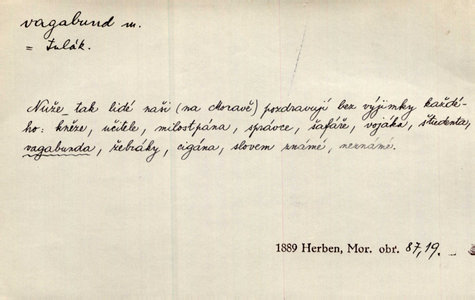 vagabund m.
= tulák.
Nuže_tak lidé naši (na Moravě) pozdravují bez výjimky každé-
ho: kněze, učitele, milostpána, správce, šafáře, vojáka, studenta,
vagabunda, žebráky, cigána, slovem známé, neznámé.
1889 Herben, Mor. obr. 87,19.